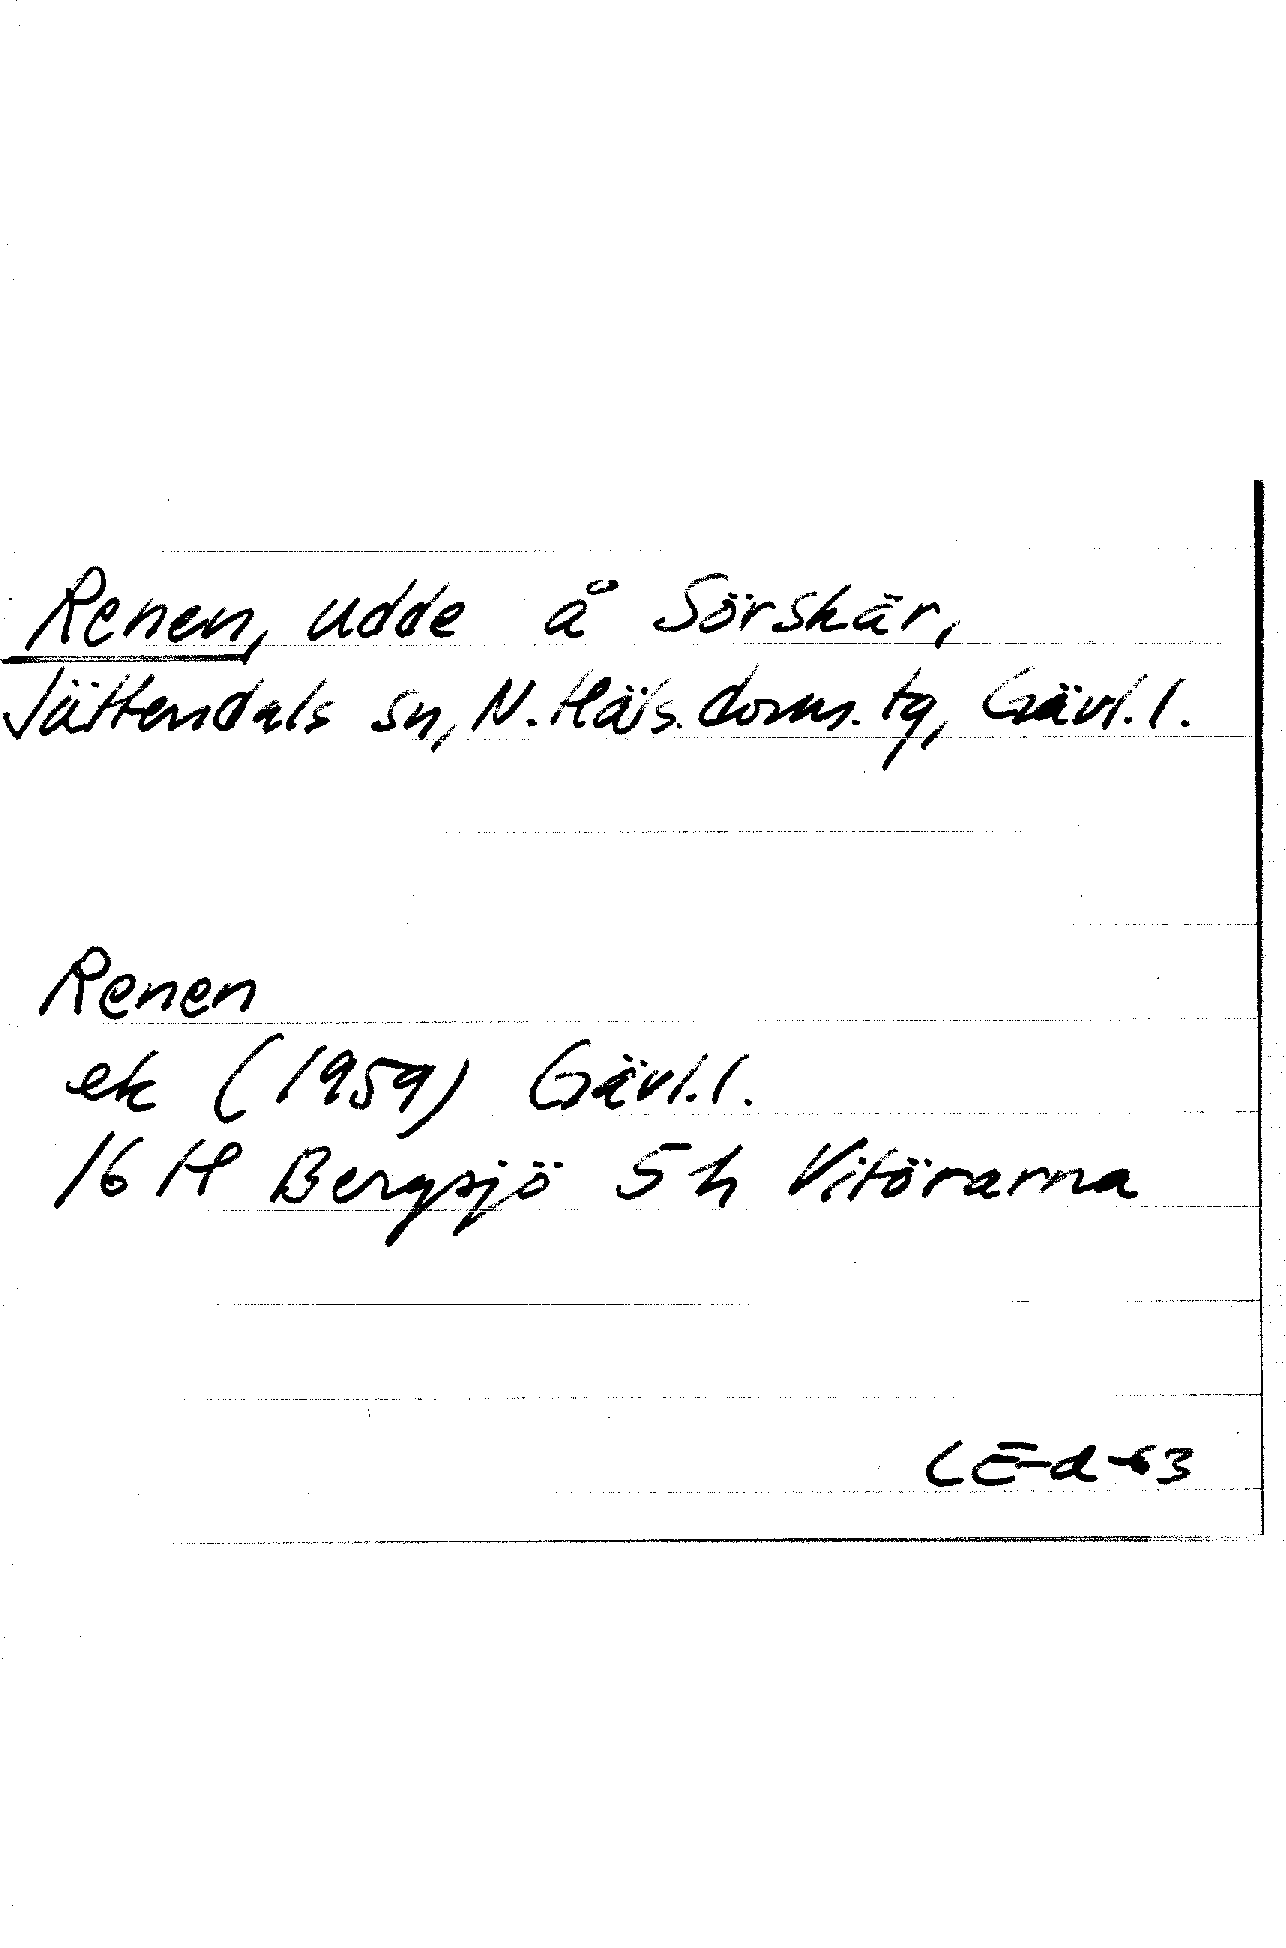 Renen, udde å Sörskär,
Jättendals sn, N. Häls. doms. tg, Gävl. l.
Renen
ek (1959) Gävl. l.
16 H Bergsjö 5 h Vitörarna
CE-d-63